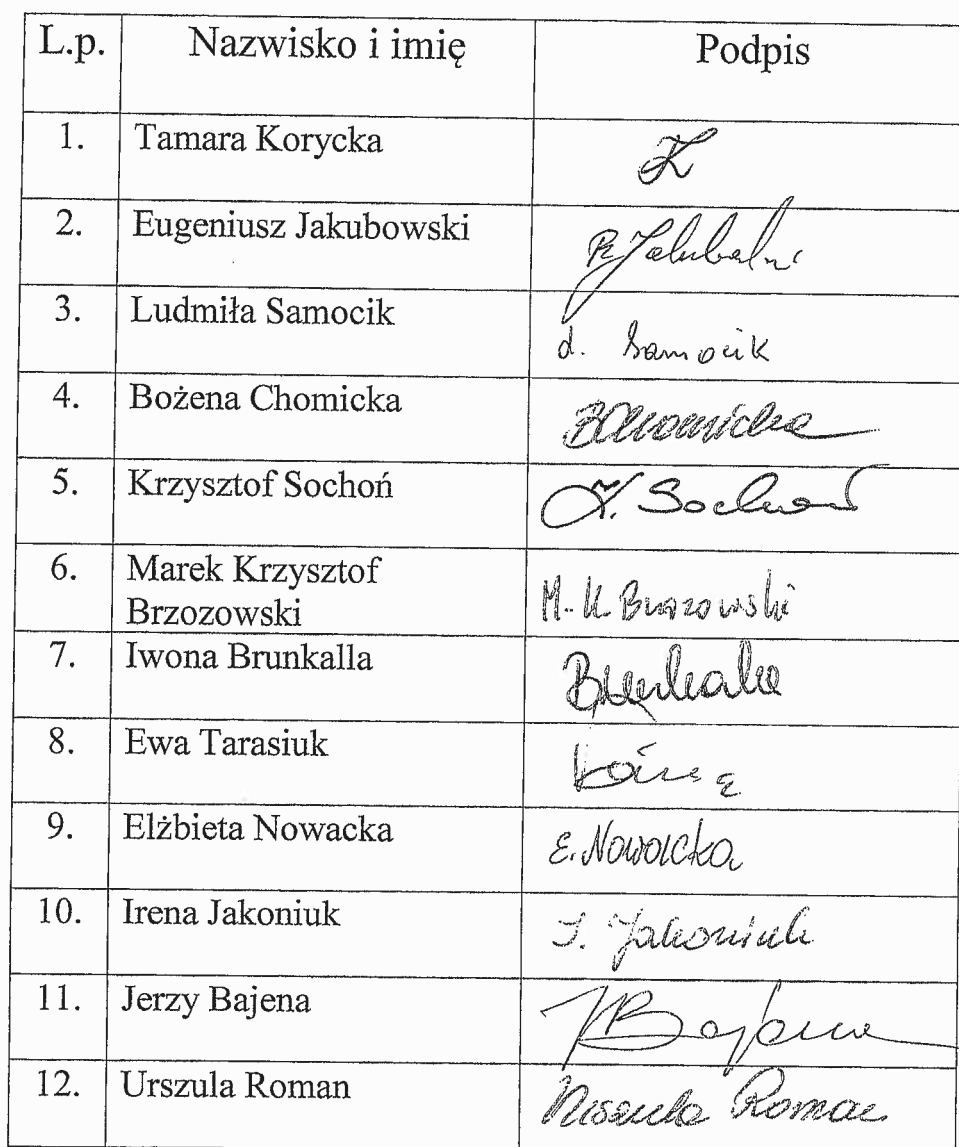 L.p. Nazwisko i imię Podpis
1. Tamara Korycka K
2. Eugeniusz Jakubowski
3. Ludmiła Samocik
Ł. Samocik
4. Bożena Chomicka
BChomicka
5. Krzysztof Sochoń K. Sochoń
6. Marek Krzysztof
Brzozowski
M. K. Brzozowski
7. Iwona Brunkalla
8. Ewa Tarasiuk
9. Elżbieta Nowacka
E. Nowacka
10. Irena Jakoniuk
I. Jakoniuk
11. Jerzy Bajena
JBajena
12. Urszula Roman
Urszula Roman